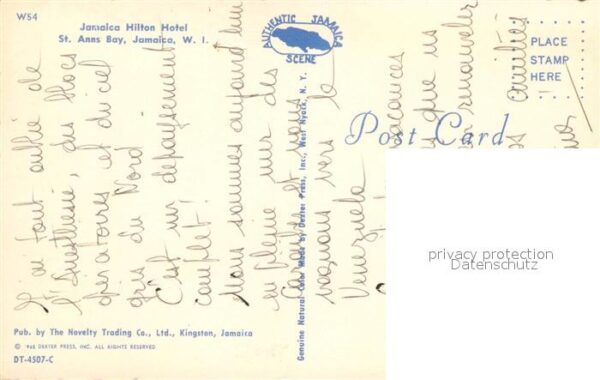 W54
Jamaica Hilton Hotel
St. Anns Bay, Jamaica, W. I.
AUTHENTIC JAMAICA
SCENE
PLACE
STAMP
HERE
Post Card
J'ai tout oublié de
l'Anesthésie, des blocs
opératoires et du ciel
gris du Nord.
C'est un dépaysement
complet!
Nous sommes aujourd'hui
en pleine mer des
Caraïbes et nous
voguons vers le
Venezuela
vacances
que
renouveler
amitiés
Genuine Natural Color Made by Dexter Press, Inc., West Nyack, N. Y.
privacy protection
Datenschutz
Pub. by The Novelty Trading Co., Ltd., Kingston, Jamaica
DEXTER PRESS, INC. ALL RIGHTS RESERVED
DT-4507-C